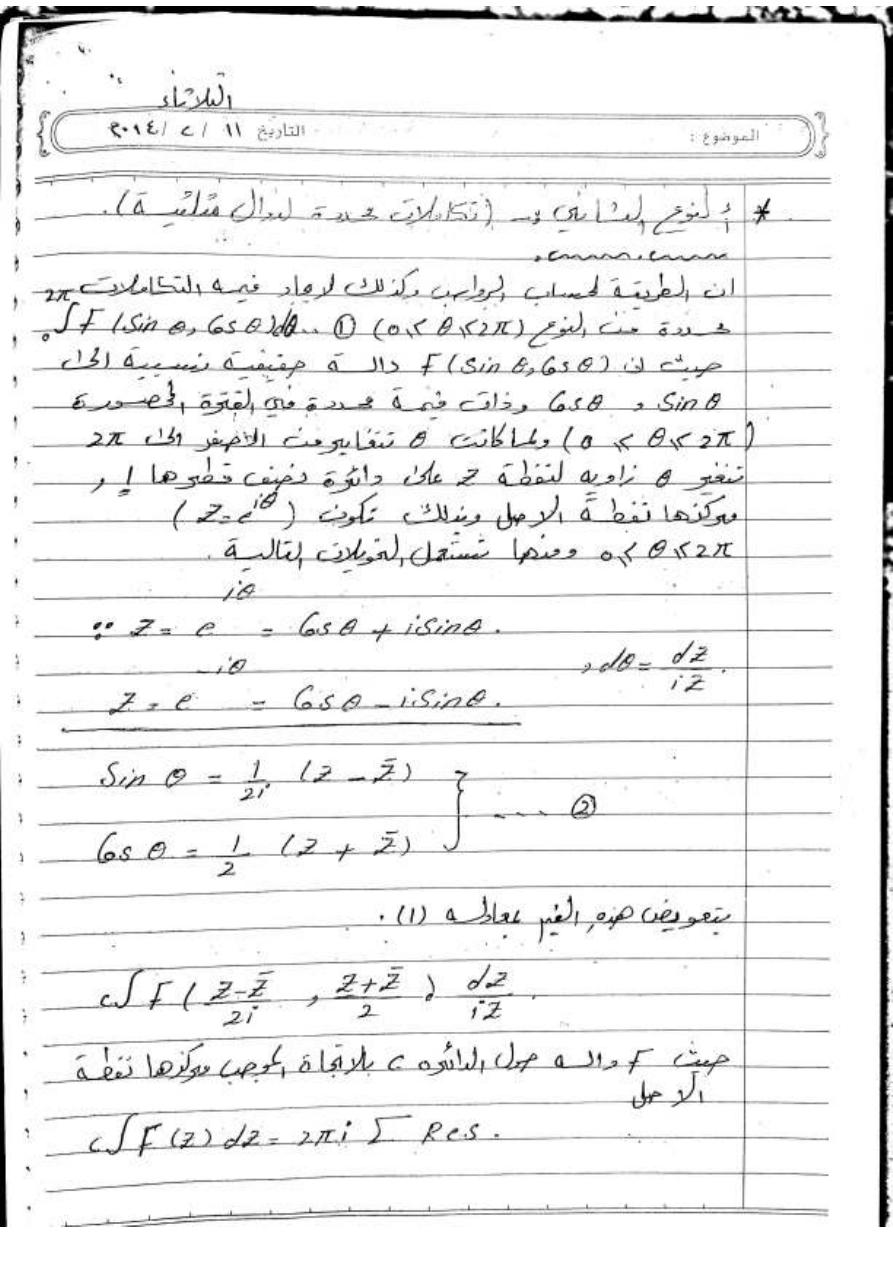 الثلاثاء
الموضوع : التاريخ ١١ / ٢ / ٢٠١٤
* النوع الثاني :- (تكاملات محددة لدوال مثلثية).
ان الطريقة لحساب الرواسب وكذلك لايجاد قيمه التكاملات
محددة من النوع ∫₀^2π F (Sin θ, Cos θ) dθ .. ① (0 ≤ θ ≤ 2π)
حيث ان F (Sin θ, Cos θ) دالة حقيقية نسبية الى
Sin θ و Cos θ وذات قيمة محددة في الفترة المحصورة
(0 ≤ θ ≤ 2π) ولما كانت θ تتغاير من الاصفر الى 2π
تتغير θ زاويه لنقطة Z على دائرة نصف قطرها 1 و
مركزها نقطة الاصل وبذلك تكون (Z = e^iθ)
0 ≤ θ ≤ 2π ومنها تستعمل التحويلات التالية .
∵ Z = e^iθ = Cos θ + i Sin θ.
, dθ = dz / iz .
Z = e^-iθ = Cos θ - i Sin θ.
Sin θ = 1/2i (Z - Z̄)
} .... ②
Cos θ = 1/2 (Z + Z̄)
بتعويض هذه القيم بمعادله (1) .
c∫ F ( Z-Z̄ / 2i , Z+Z̄ / 2 ) dz / iz .
حيث F داله حول الدائره C بالاتجاة الموجب مركزها نقطة
الاصل
c∫ F (Z) dz = 2πi Σ Res .